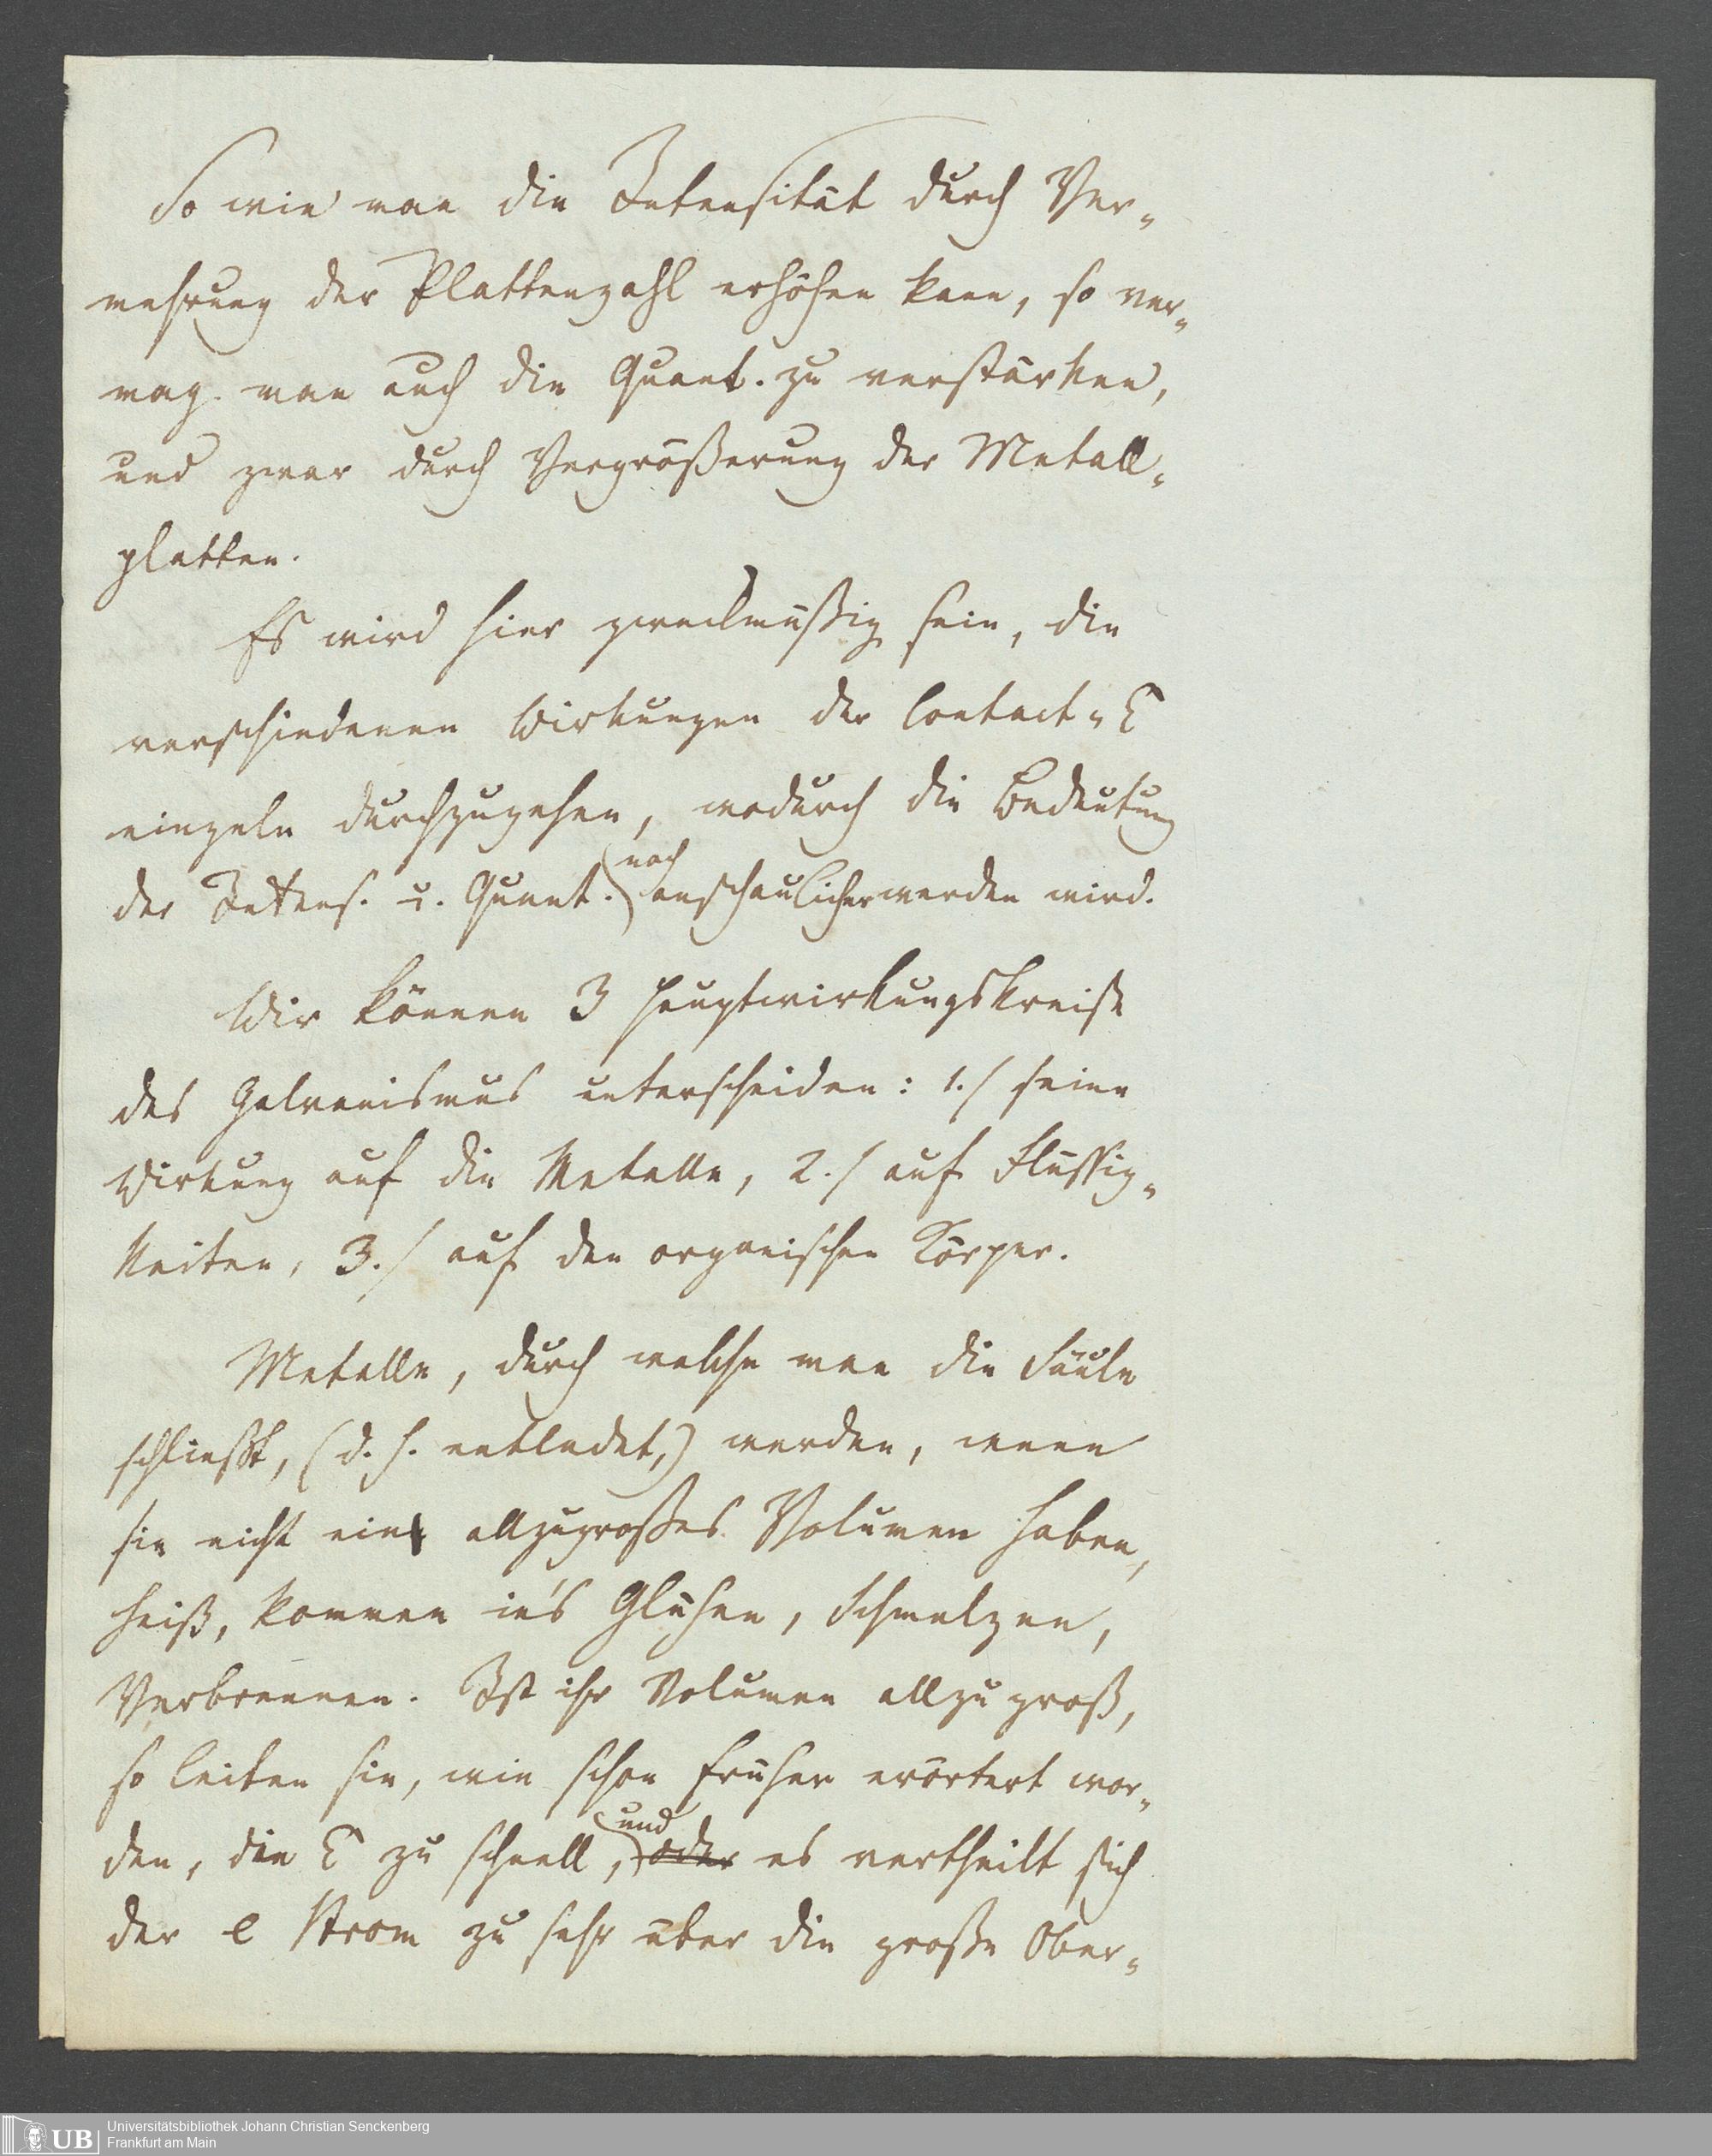 So wie man die Intensität durch Ver-
mehrung der Plattenzahl erhöhen kann, so ver-
mag man auch die Quant. zu verstärken,
und zwar durch Vergrößerung der Metall-
platten.
Es wird hier zweckmäßig sein, die
verschiedenen Wirkungen der Contact-E
einzeln durchzugehen, wodurch die Bedeutung
noch
der Intens. u. Quant. anschaulicher werden wird.
Wir können 3 Hauptwirkungskreise
des Galvanismus unterscheiden: 1./ seine
Wirkung auf die Metalle, 2./ auf Flüssig-
keiten, 3./ auf den organischen Körper.
Metalle, durch welche man die Säule
schließt, (d. h. entladet,) werden, wenn
sie nicht ein allzugroßes Volumen haben,
heiß, kommen in's Glühen, Schmelzen,
Verbrennen. Ist ihr Volumen allzu groß,
so leiten sie, wie schon früher erörtert wor-
und
den, die E zu schnell, oder es vertheilt sich
der e Strom zu sehr über die große Ober-
UB
Universitätsbibliothek Johann Christian Senckenberg
Frankfurt am Main